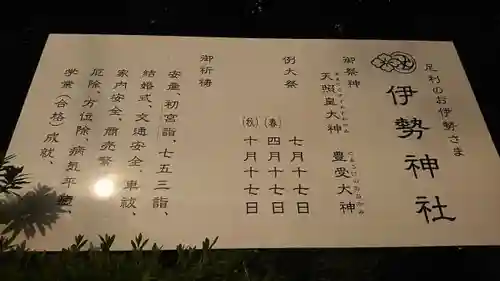 足利のお伊勢さま
伊勢神社
御祭神
天照皇大神　豊受大神
例大祭
七月十七日
（春）四月十七日
（秋）十月十七日
御祈禱
安産、初宮詣、七五三詣、
結婚式、交通安全、車祓、
家内安全、商売繁
厄除、方位除、病気平癒、
学業（合格）成就、